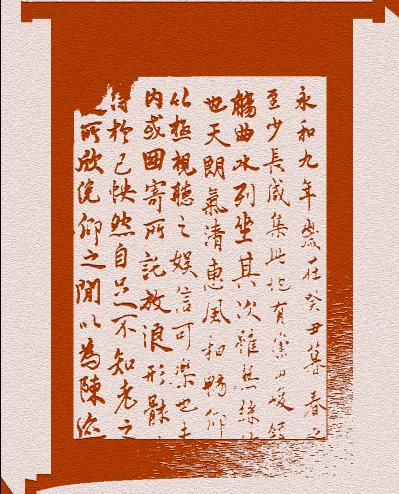 永和九年歲在癸丑暮春之
至少長咸集此地有崇山峻領
觴曲水列坐其次雖無絲竹
也天朗氣清惠風和暢仰
以極視聽之娛信可樂也夫
內或因寄所託放浪形骸
得於己怏然自足不知老之
所欣俛仰之閒以為陳迹